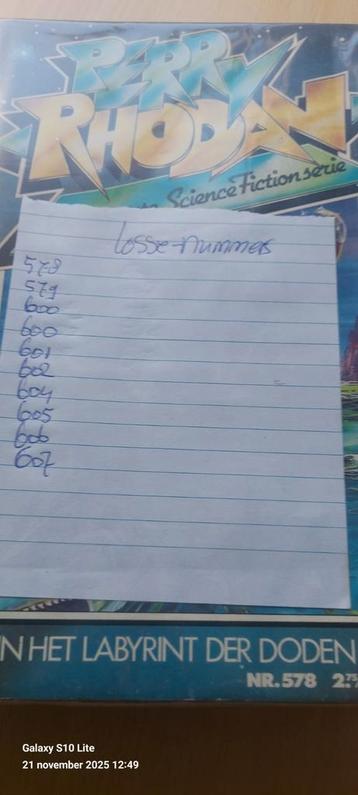 PERRY
RHODAN
Science Fictionserie
losse-nummers
578
579
600
600
601
602
604
605
606
607
IN HET LABYRINT DER DODEN
NR. 578 2.75
Galaxy S10 Lite
21 november 2025 12:49